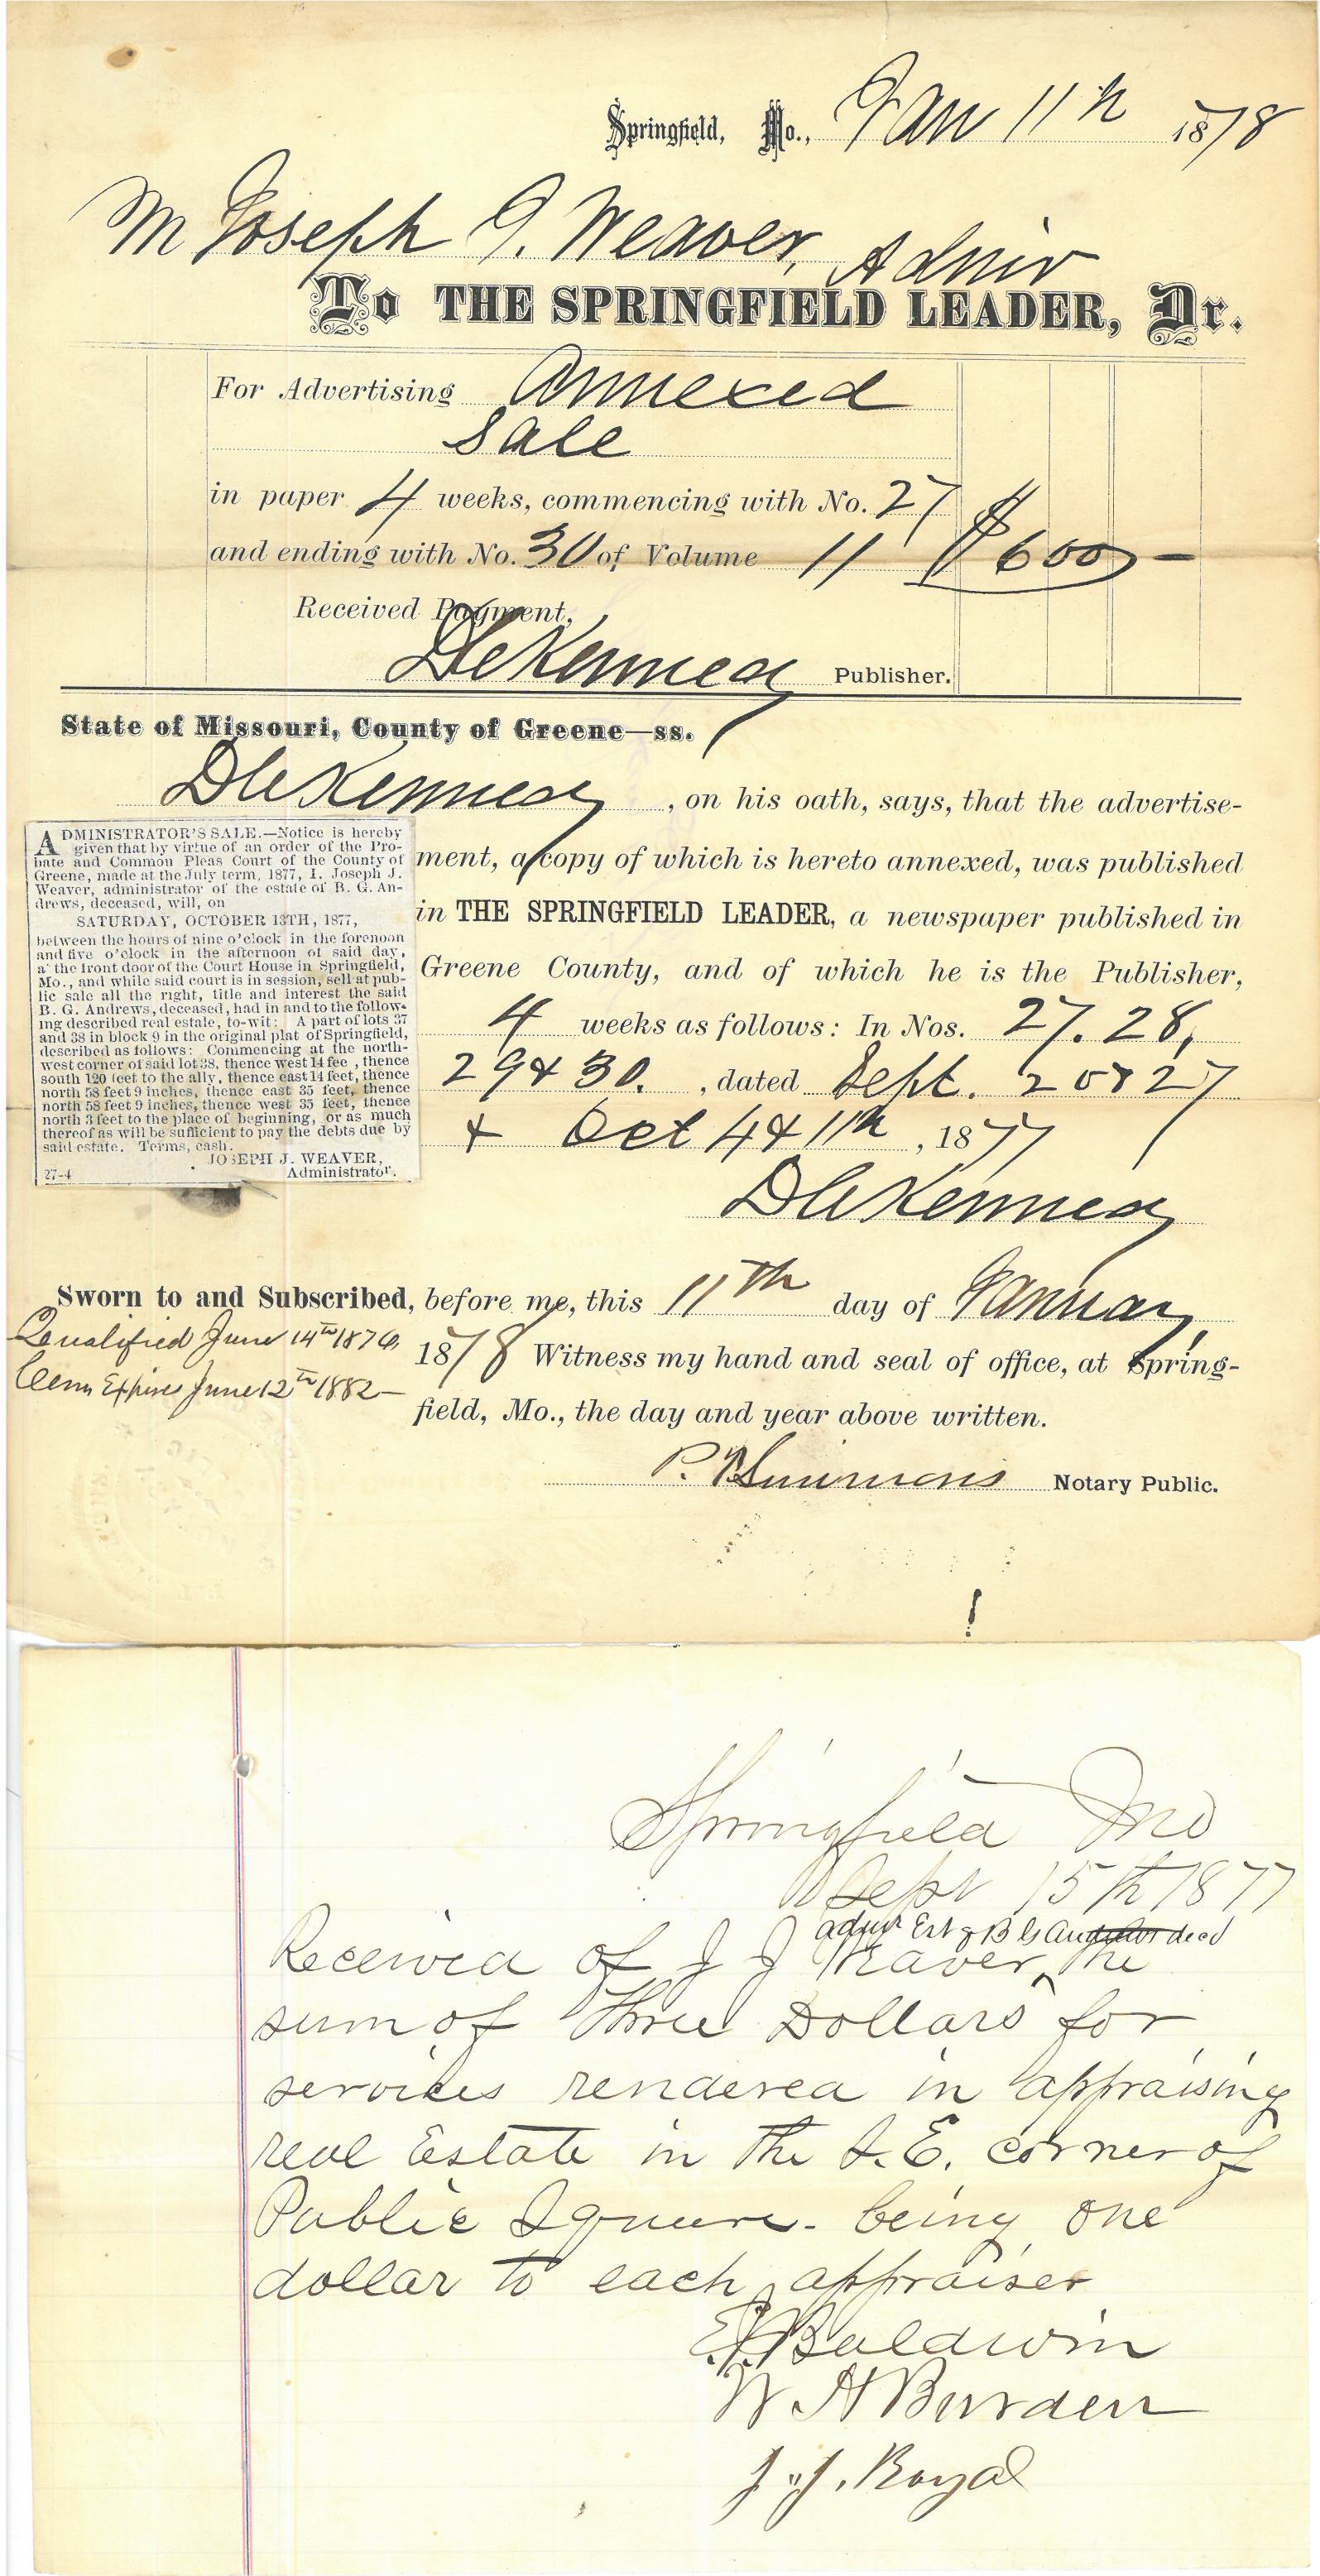 Springfield, Mo., Jan 11th 1878
M Joseph J. Weaver, Admir
To THE SPRINGFIELD LEADER, Dr.
For Advertising Annexed
Sale
in paper 4 weeks, commencing with No. 27
and ending with No. 30 of Volume 11 $ 600 —
Received Payment,
D C Kennedy Publisher.
State of Missouri, County of Greene—ss.
D C Kennedy, on his oath, says, that the advertise-
ment, a copy of which is hereto annexed, was published
in THE SPRINGFIELD LEADER, a newspaper published in
Greene County, and of which he is the Publisher,
4 weeks as follows: In Nos. 27. 28,
29 & 30. , dated Sept. 20 & 27
& Oct 4 & 11th , 1877
D C Kennedy
ADMINISTRATOR'S SALE.—Notice is hereby
given that by virtue of an order of the Pro-
bate and Common Pleas Court of the County of
Greene, made at the July term, 1877, I. Joseph J.
Weaver, administrator of the estate of B. G. An-
drews, deceased, will, on
SATURDAY, OCTOBER 13TH, 1877,
between the hours of nine o'clock in the forenoon
and five o'clock in the afternoon of said day,
a' the front door of the Court House in Springfield,
Mo., and while said court is in session, sell at pub-
lic sale all the right, title and interest the said
B. G. Andrews, deceased, had in and to the follow-
ing described real estate, to-wit: A part of lots 37
and 38 in block 9 in the original plat of Springfield,
described as follows: Commencing at the north-
west corner of said lot 38, thence west 14 fee , thence
south 120 feet to the ally, thence east 14 feet, thence
north 58 feet 9 inches, thence east 35 feet, thence
north 58 feet 9 inches, thence west 35 feet, thence
north 3 feet to the place of beginning, or as much
thereof as will be sufficient to pay the debts due by
said estate. Terms, cash.
JOSEPH J. WEAVER,
27-4 Administrator.
Sworn to and Subscribed, before me, this 11th day of January,
1878 Witness my hand and seal of office, at Spring-
field, Mo., the day and year above written.
Qualified June 14th 1876,
Term Expires June 12th 1882—
P. Simmons Notary Public.
Springfield Mo
Sept 15th 1877
admr Est of B G deed
Received of J J Weaver, the
sum of Three Dollars for
services rendered in appraising
real Estate in the S. E. corner of
Public Square. being one
dollar to each appraiser
E. Baldwin
W H Burden
J. J. Royal